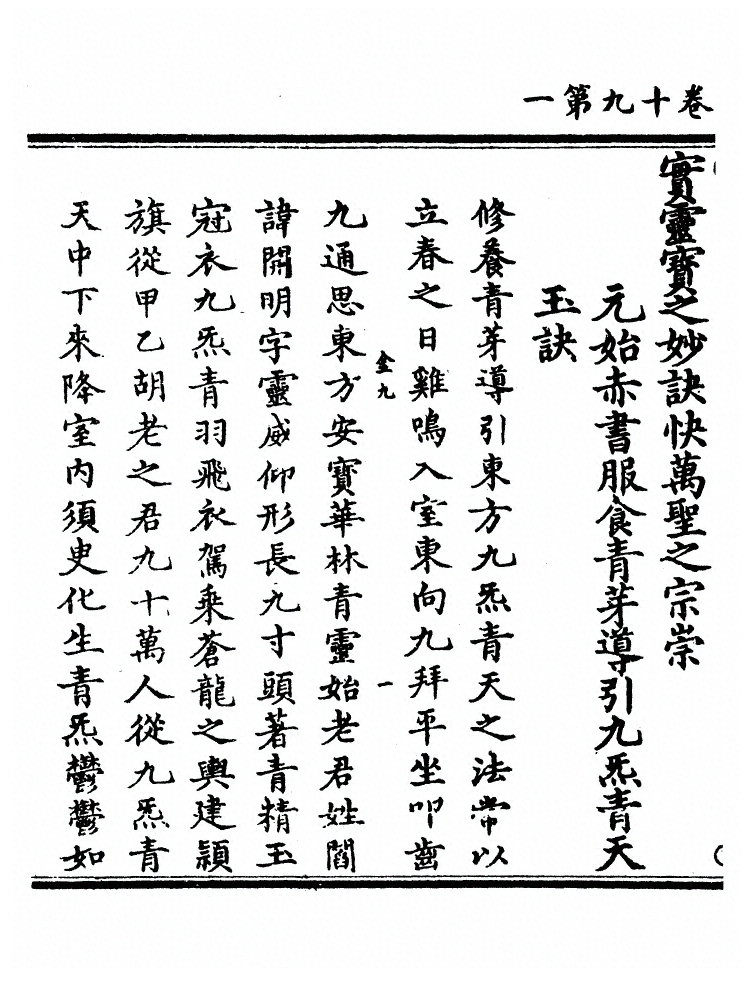 卷十九第一
實靈寶之妙訣快萬聖之宗崇
元始赤書服食青芽導引九炁青天
玉訣
修養青芽導引東方九炁青天之法常以
立春之日雞鳴入室東向九拜平坐叩齒
金九
一
九通思東方安寶華林青靈始老君姓閻
諱開明字靈威仰形長九寸頭著青精玉
冠衣九炁青羽飛衣駕乘蒼龍之輿建䫂
旗從甲乙胡老之君九十萬人從九炁青
天中下來降室內須史化生青炁鬱鬱如